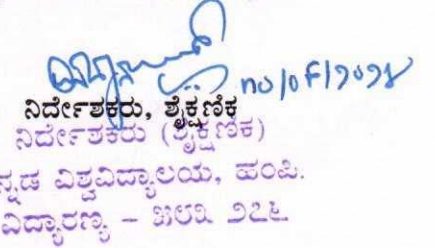 ೧೦/೦೯/೨೦೨೪
ನಿರ್ದೇಶಕರು, ಶೈಕ್ಷಣಿಕ
ನಿರ್ದೇಶಕರು (ಶೈಕ್ಷಣಿಕ)
ನ್ನಡ ವಿಶ್ವವಿದ್ಯಾಲಯ, ಹಂಪಿ.
ವಿದ್ಯಾರಣ್ಯ – ೫೮೩ ೨೭೬